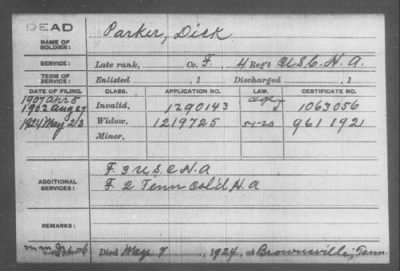 DEAD
NAME OF SOLDIER: Parker, Dick
SERVICE: Late rank, Co. F, 4 Reg't U.S.C.H.A.
TERM OF SERVICE: Enlisted , 1 Discharged , 1
DATE OF FILING. CLASS. APPLICATION NO. LAW. CERTIFICATE NO.
1907 Apr 5
1902 Aug 27 Invalid, 1290143 1063056
1924 May 23 Widow, 1219725 961921
Minor,
ADDITIONAL SERVICES: F 3 U.S.C.H.A
F 2 Tenn Col'd H.A
REMARKS:
Died May 7, 1924, at Brownsville, Tenn.